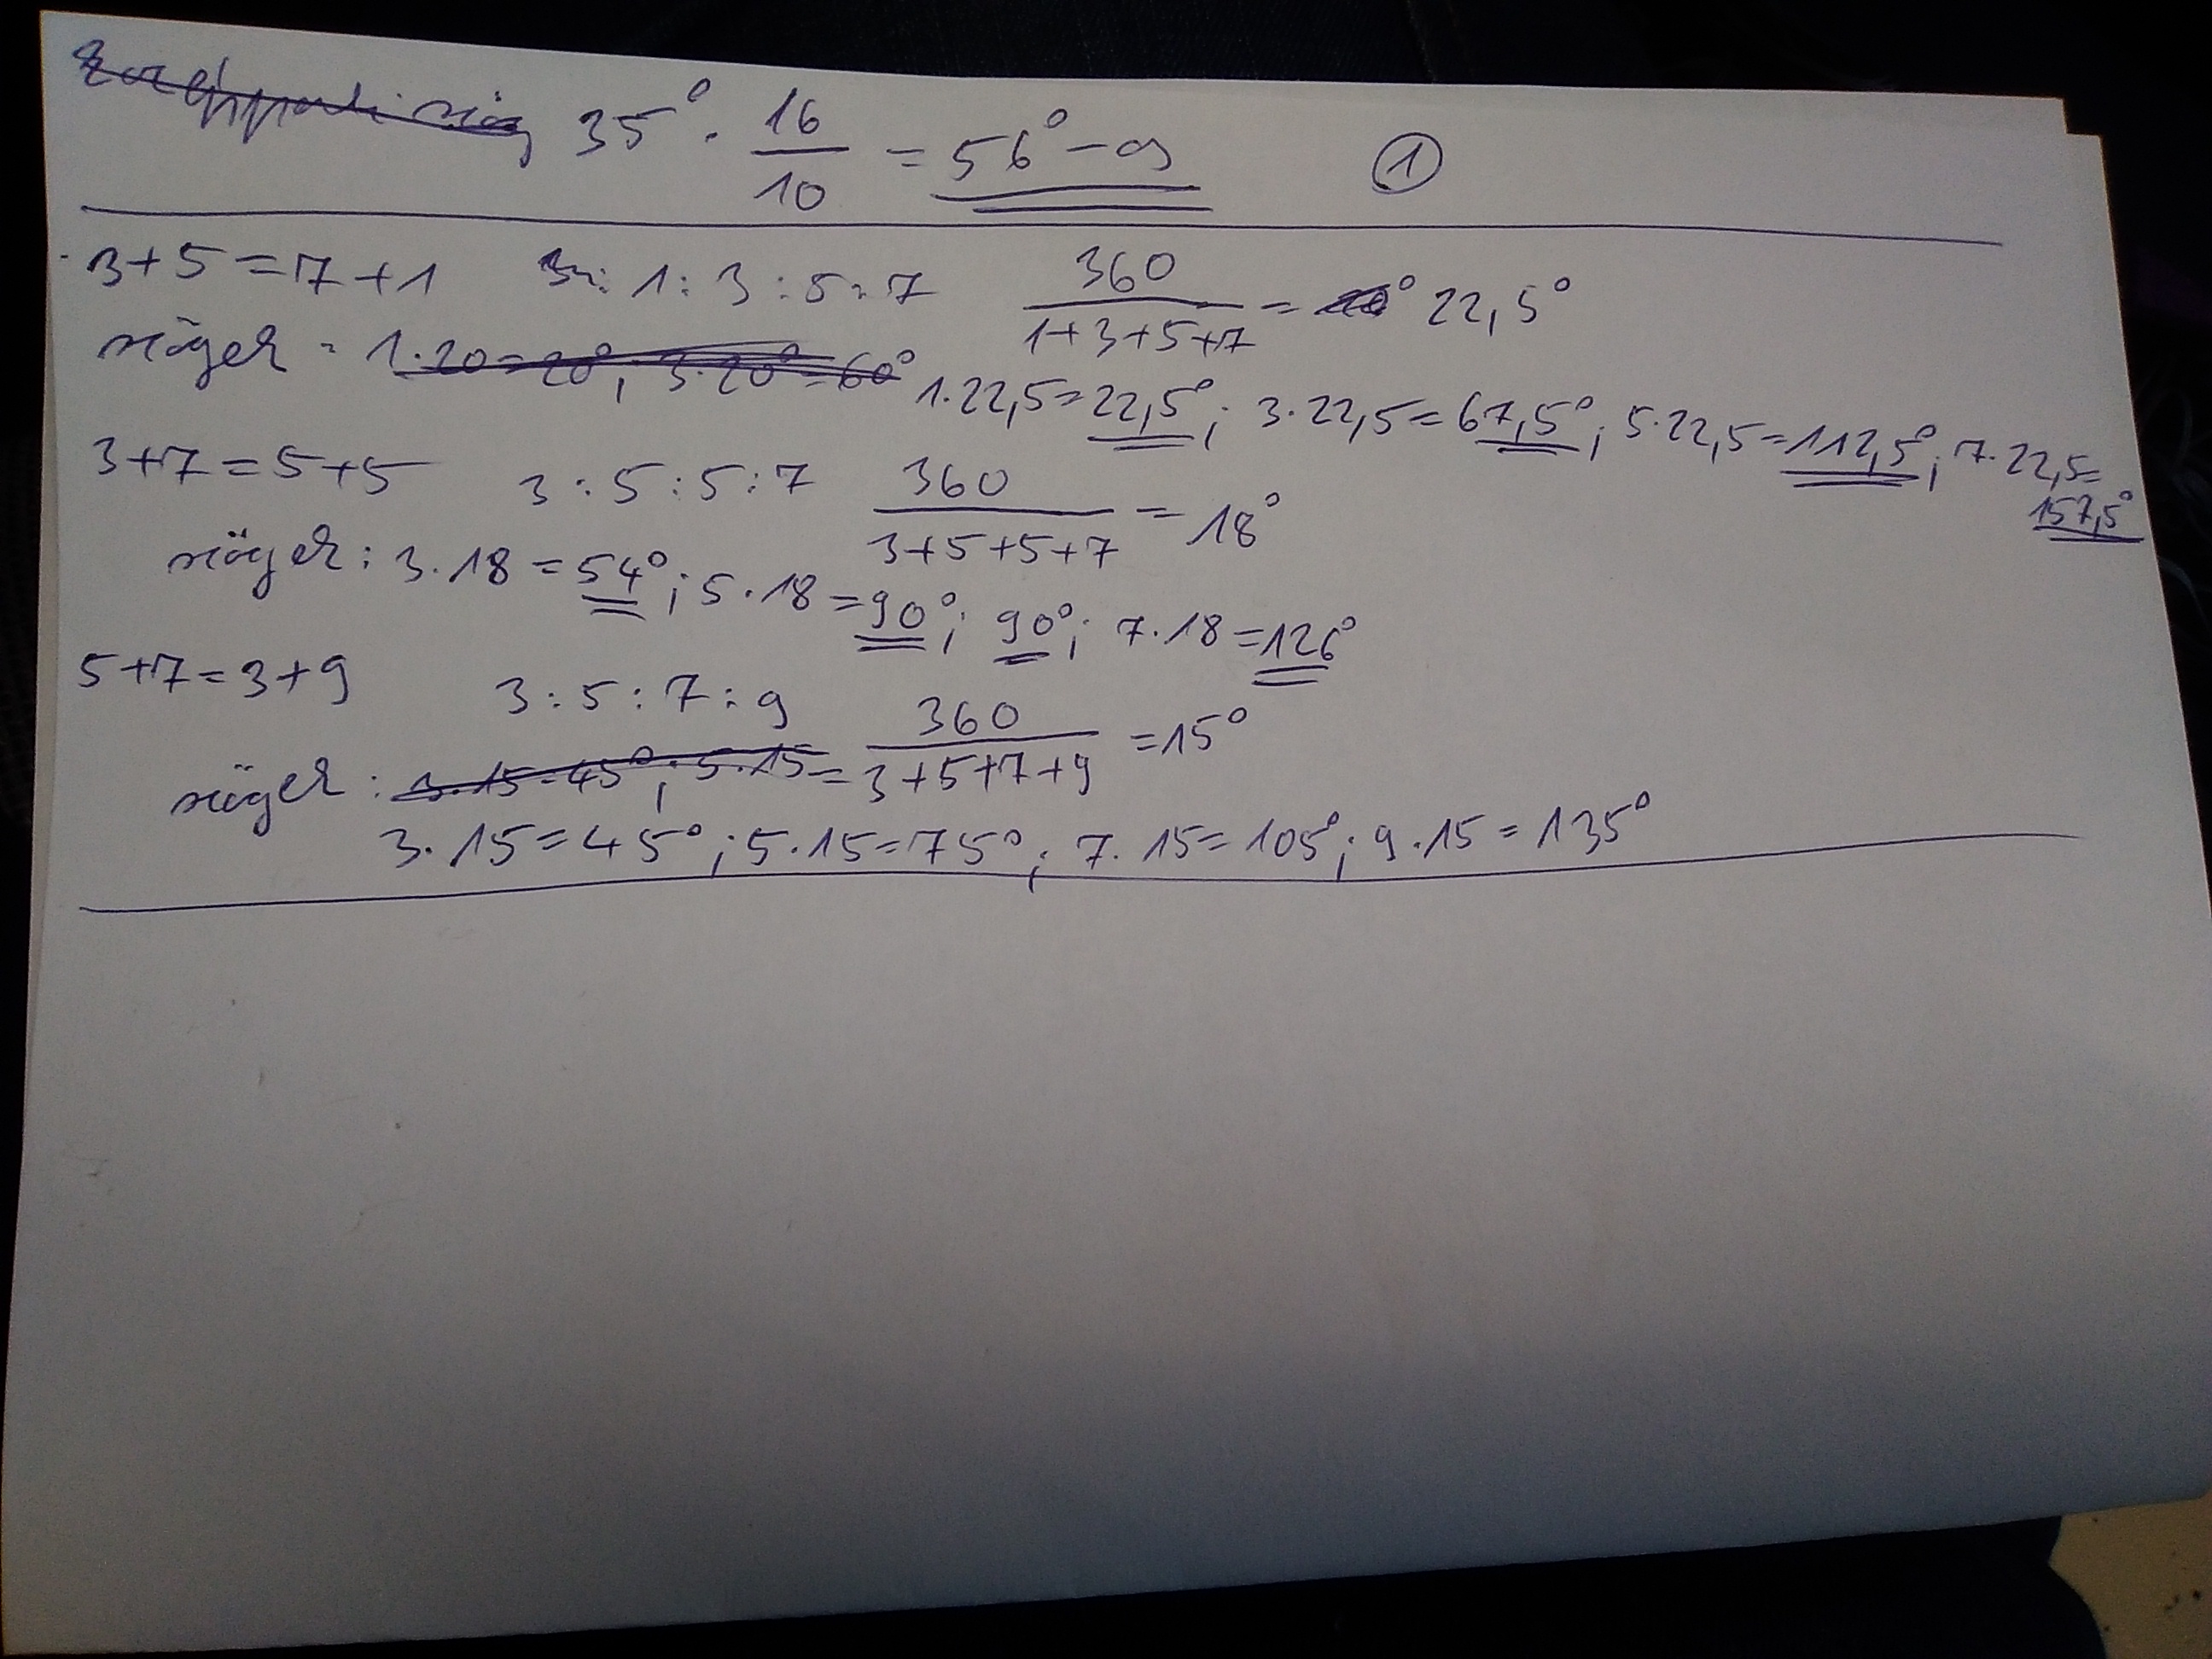 35° · 16/10 = 56°-os ①
3+5=7+1 1:3:5:7 360/(1+3+5+7) = 22,5°
szögek: 1·20=20°; 3·20°=60° 1·22,5=22,5°; 3·22,5=67,5°; 5·22,5=112,5°; 7·22,5=
157,5°
3+7=5+5 3:5:5:7 360/(3+5+5+7) = 18°
szögek: 3·18=54°; 5·18=90°; 90°; 7·18=126°
5+7=3+9 3:5:7:9 360/(3+5+7+9) = 15°
szögek: 3·15=45°; 5·15=
3·15=45°; 5·15=75°; 7·15=105°; 9·15=135°